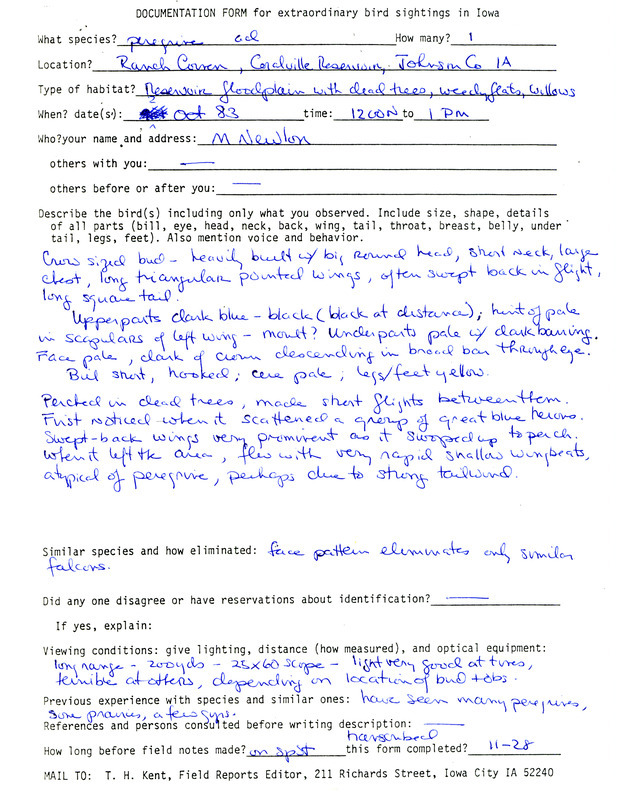 DOCUMENTATION FORM for extraordinary bird sightings in Iowa
What species? peregrine ad How many? 1
Location? Ranch Corren, Coralville Reservoir, Johnson Co IA
Type of habitat? Reservoir floodplain with dead trees, weedy flats, willows
When? date(s): 2 Oct 83 time: 1200N to 1 PM
Who?your name and address: M Newlon
others with you:
others before or after you:
Describe the bird(s) including only what you observed. Include size, shape, details
of all parts (bill, eye, head, neck, back, wing, tail, throat, breast, belly, under
tail, legs, feet). Also mention voice and behavior.
Crow sized bird - heavily built w/ big round head, short neck, large
chest, long triangular pointed wings, often swept back in flight,
long square tail.
Upperparts dark blue-black (black at distance); hint of pale
in scapulars of left wing - moult? Underparts pale w/ dark barring.
Face pale, dark of crown descending in broad bar through eye.
Bill short, hooked; cere pale; legs/feet yellow.
Perched in dead trees, made short flights between them.
First noticed when it scattered a group of great blue herons.
Swept-back wings very prominent as it swooped up to perch.
When it left the area, flew with very rapid shallow wingbeats,
atypical of peregrine, perhaps due to strong tailwind.
Similar species and how eliminated: face pattern eliminates only similar
falcons.
Did any one disagree or have reservations about identification?
If yes, explain:
Viewing conditions: give lighting, distance (how measured), and optical equipment:
long range - 200yds - 25X60 scope - light very good at times,
terrible at others, depending on location of bird + obs.
Previous experience with species and similar ones: have seen many peregrines,
some prairies, a few gyrs.
References and persons consulted before writing description:
How long before field notes made? on spot this form completed? 11-28
MAIL TO: T. H. Kent, Field Reports Editor, 211 Richards Street, Iowa City IA 52240